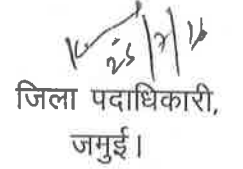 25/7/16
जिला पदाधिकारी,
जमुई।